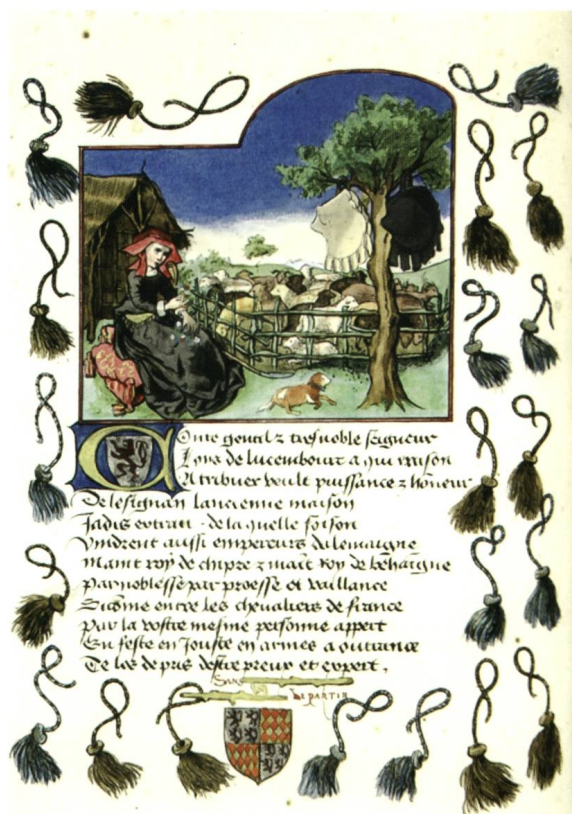 Conte gentil & tresnoble seigneur
Loys de lucembourc a qui raison
Atribuer veult puissance & honeur
De lesignan lancienne maison
Jadis extrait de la quelle foison
Vindrent aussi empereurs dalemaigne
Maint roy de chipre & mait roy de behaigne
Par noblesse par proesse et vaillance
Sicome entre les chevaliers de france
Par la vostre mesme personne appert
En feste en Jouste en armes a outrance
De los de pris destre preux et expert.
SANS
DEPARTIR